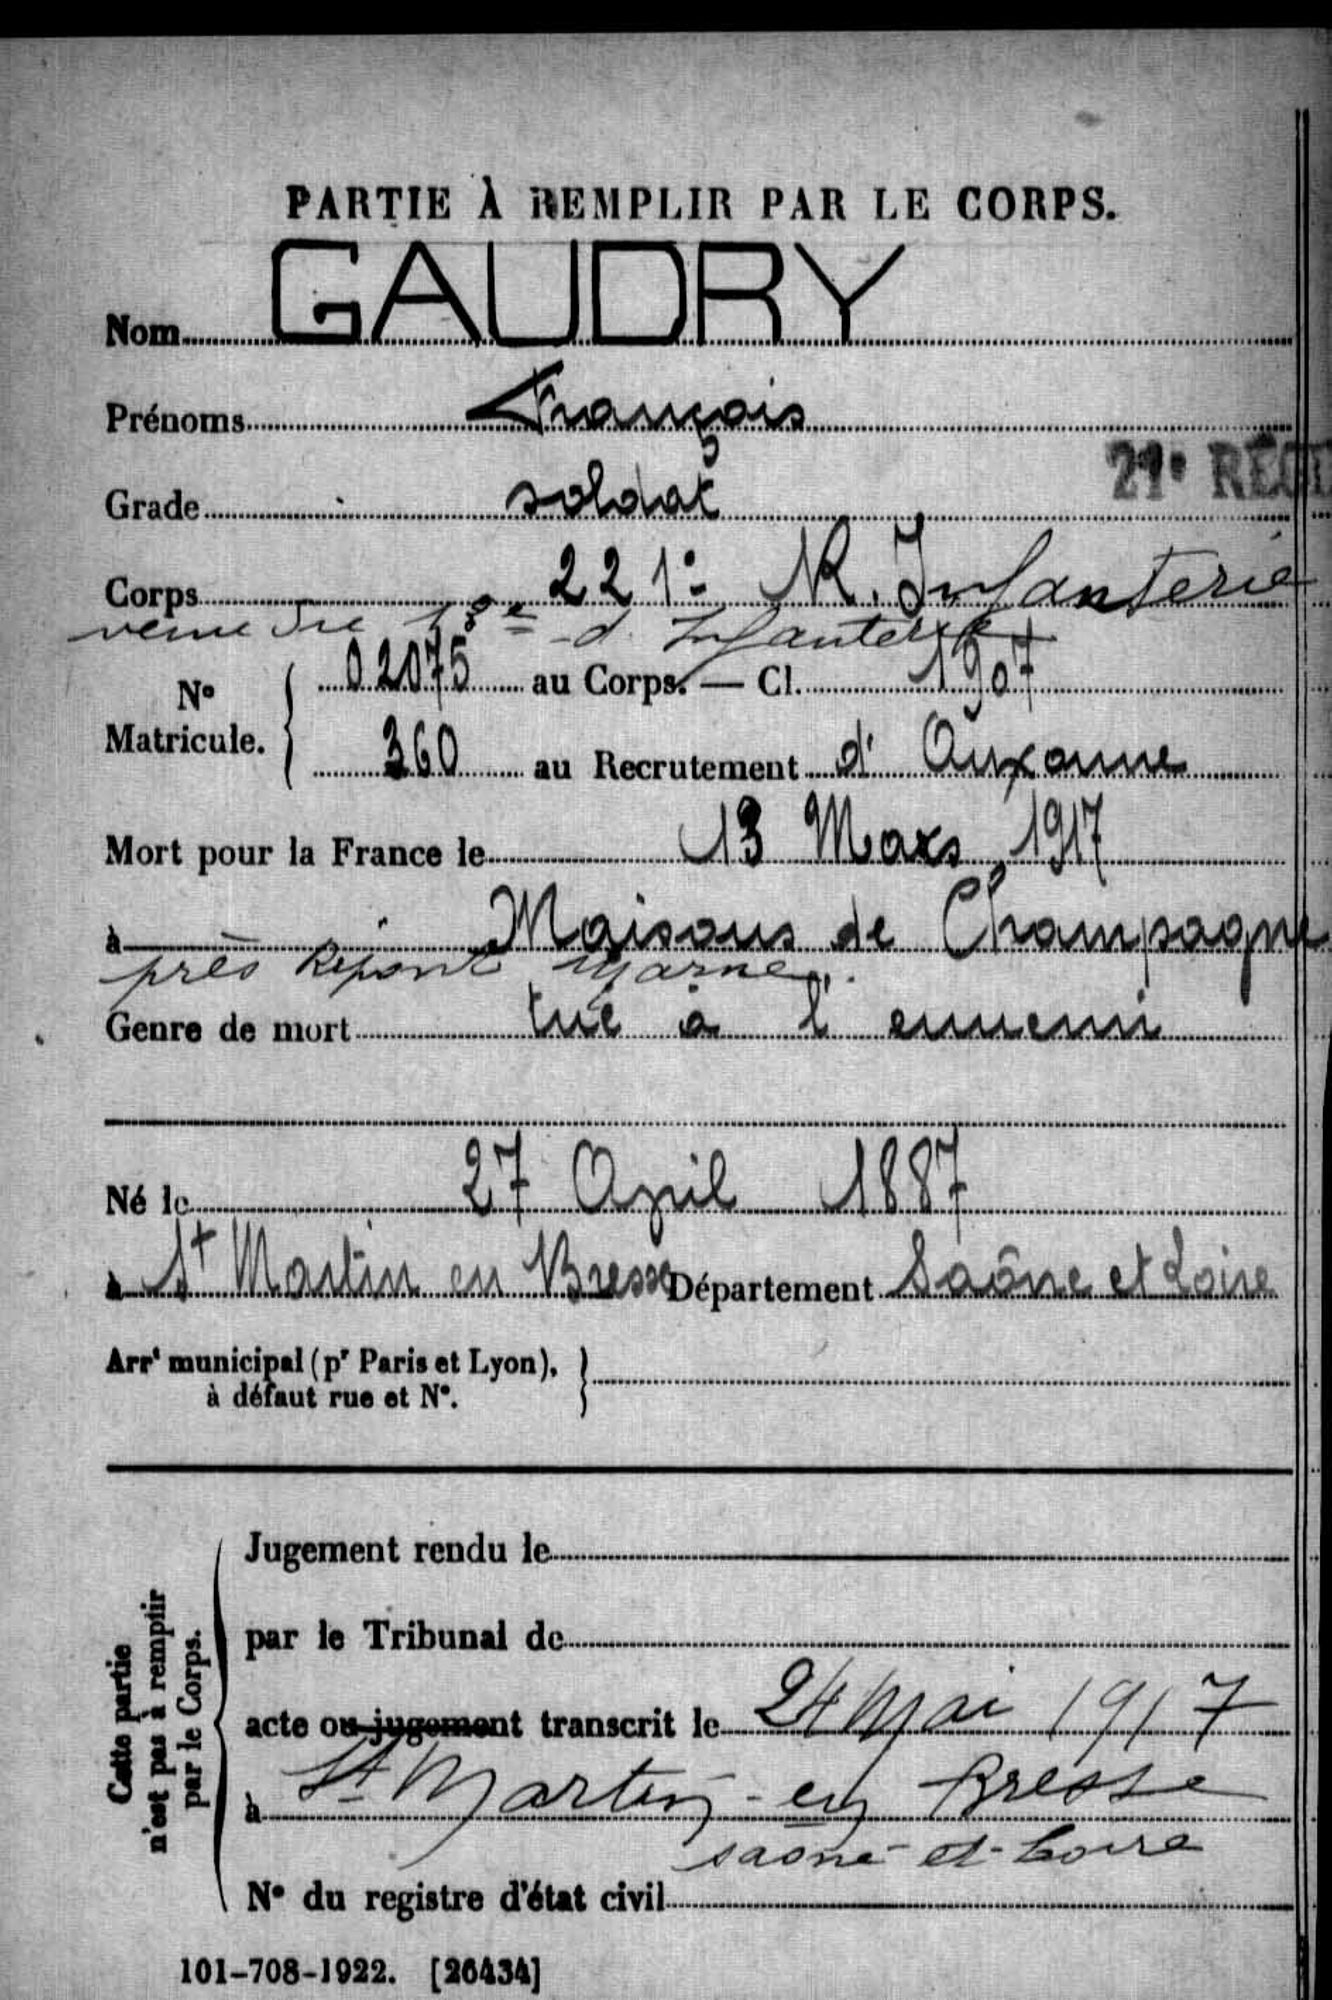 PARTIE À REMPLIR PAR LE CORPS.
Nom GAUDRY
Prénoms François
Grade soldat
21e RÉGI
Corps 221e R. Infanterie
venu du 18e d'Infanterie
No Matricule. 02075 au Corps. — Cl. 1907
360 au Recrutement d'Auxonne
Mort pour la France le 13 Mars 1917
à Maisons de Champagne
près Marne
Genre de mort tué à l'ennemi
Né le 27 Avril 1887
à St Martin en Bresse Département Saône et Loire
Arrt municipal (pr Paris et Lyon),
à défaut rue et No.
Cette partie
n'est pas à remplir
par le Corps.
Jugement rendu le
par le Tribunal de
acte ou jugement transcrit le 24 Mai 1917
à St Martin-en Bresse
saone-et-Loire
No du registre d'état civil
101-708-1922. [26434]